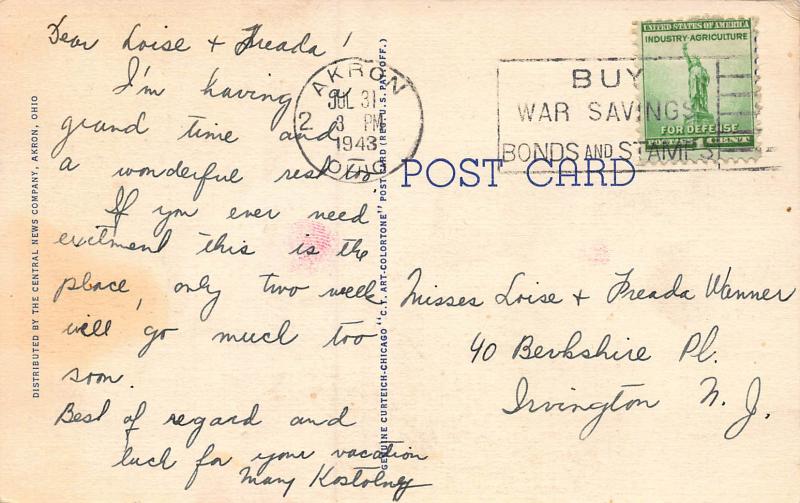 Dear Loise + Freada!
I'm having
grand time and
a wonderful rest too.
If you ever need
exitment this is the
place, only two week
will go much too
soon.
Best of regard and
luck for your vacation
Mary Kostolney
DISTRIBUTED BY THE CENTRAL NEWS COMPANY, AKRON, OHIO
GENUINE CURTEICH-CHICAGO "C.T. ART-COLORTONE" POST CARD (REG. U.S. PAT. OFF.)
AKRON
JUL 31
2 3 PM
1943
OHIO
BUY
WAR SAVINGS
BONDS AND STAMPS
UNITED STATES OF AMERICA
INDUSTRY-AGRICULTURE
FOR DEFENSE
1 CENT
POST CARD
Misses Loise + Freada Wanner
40 Berkshire Pl.
Irvington N. J.